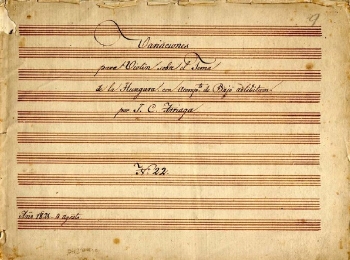 9
Variaciones
para Violín sobre el Tema
de la Hungara con Acompto. de Bajo adlibitum
por J. C. Arriaga
No. 22.
Año 1821. 4 agosto